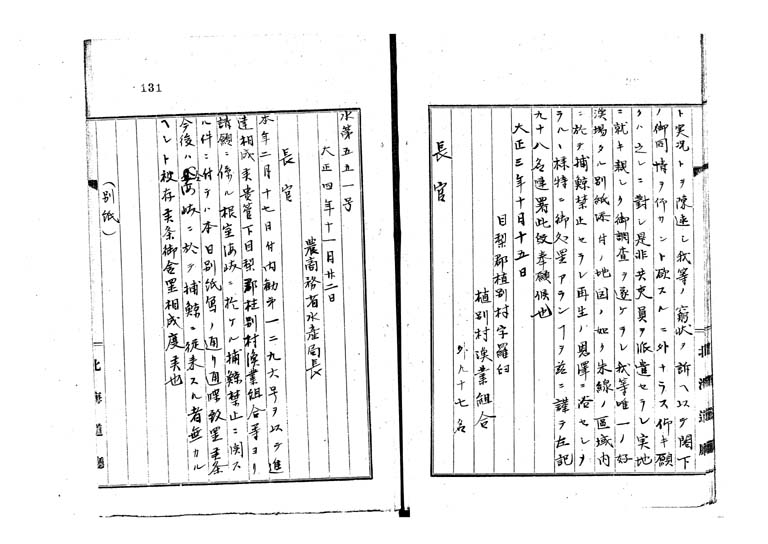 ト実況トヲ陳述シ我等ノ窮状ヲ訴ヘ以テ閣下
ノ御同情ヲ仰カント欲スルニ外ナラス仰キ願
クハ之レニ対シ是非共吏員ヲ派遣セラレ実地
ニ就キ親シク御調査ヲ遂ケラレ我等唯一ノ好
漁場タル別紙添付ノ地図ノ如ク朱線ノ区域内
ニ於テ捕鯨禁止セラレ再生ノ恩澤ニ浴セシメ
ラルヽ様特ニ御処置アランコヲ茲ニ謹テ左記
九十八名連署此段奉願候也
大正三年十月十五日
目梨郡植別村字羅臼
植別村漁業組合
外九十七名
長官
131
水第五五一号
大正四年十一月廿二日
農商務省水産局長
長官
本年二月十七日付内勧第一二九六号ヲ以テ進
達相成候貴管下目梨郡植別村漁業組合等ヨリ
請願ニ係ル根室海峡ニ於ケル捕鯨禁止ニ関ス
ル件ニ付テハ本日別紙写ノ通リ通牒致置候条
今後ハ海峡ニ於テ捕鯨ニ従来スル者無カル
ヘシト被存候条御含置相成度候也
(別紙)
北海道廳
北海道廳